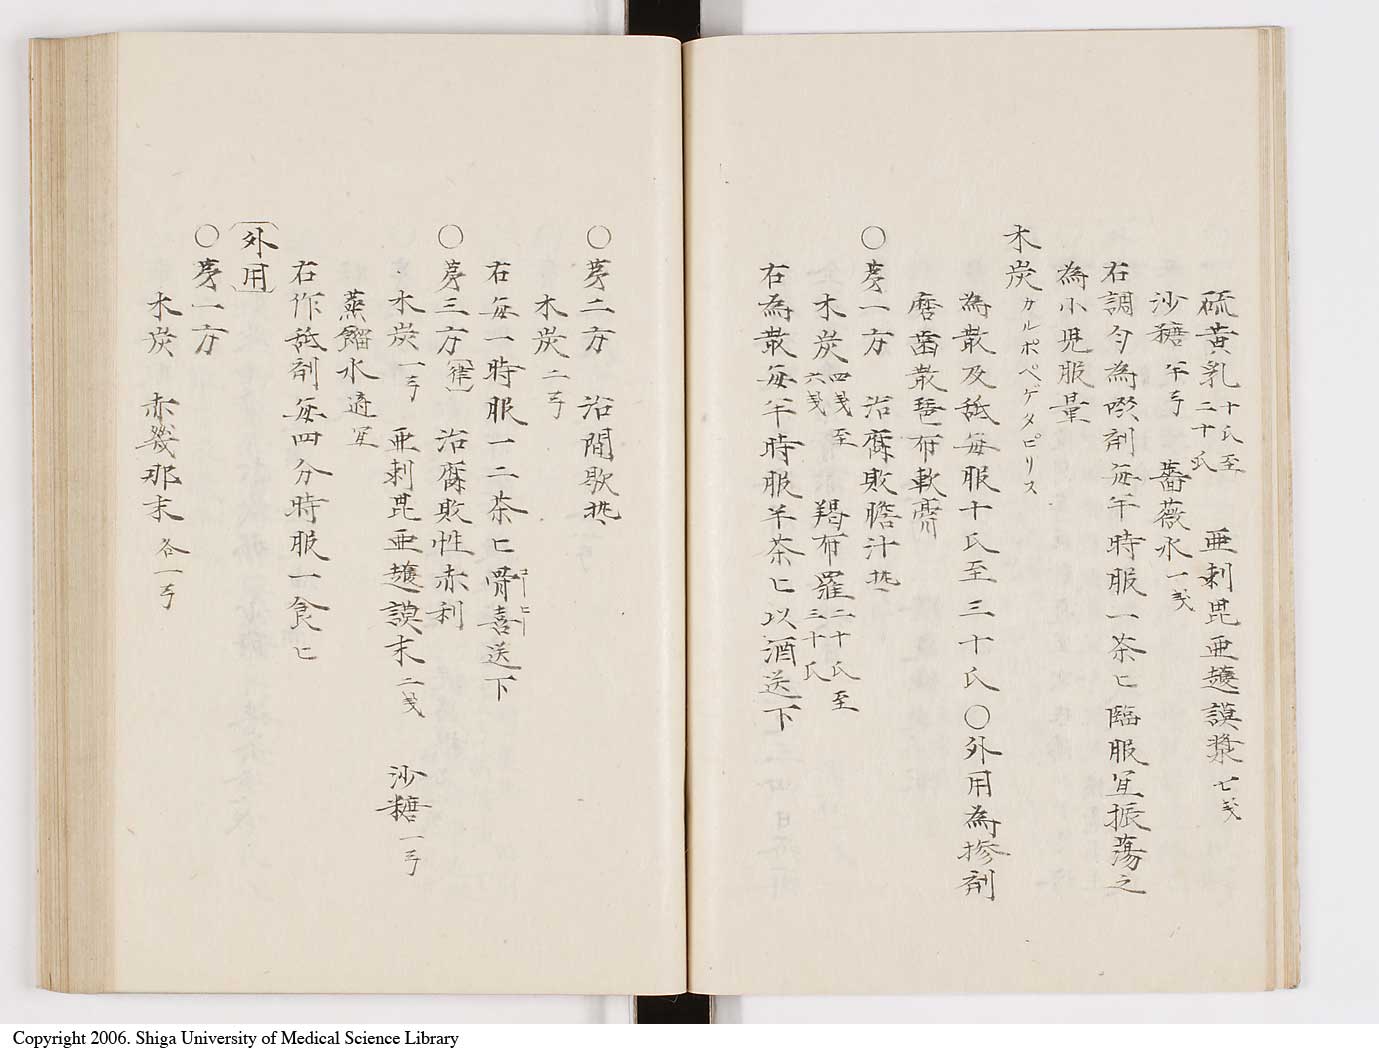 硫黄乳 十氏至二十氏 亜剌毘亜謨漿 七戔
沙糖 半丂 薔薇水 一戔
右調匀為剤毎半時服一茶匕臨服宜振蕩之
為小児服量
木炭 カルボベゲタビリス
為散及舐毎服十氏至三十氏〇外用為摻剤
磨歯散琶布軟膏
〇第一方 治腐敗胆汁熱
木炭 四戔至六戔 羯布羅 二十氏至三十氏
右為散毎半時服半茶匕以酒送下
〇第二方 治間歇熱
木炭 二丂
右毎一時服一二茶匕骨喜送下
コーヒー
〇第三方 〔律〕 治腐敗性赤利
木炭 一丂 亜剌毘亜謨末 二戔 沙糖 一丂
蒸餾水 適宜
右作舐剤毎四分時服一食匕
〔外用〕
〇第一方
木炭 赤幾那末 各一丂
Copyright 2006. Shiga University of Medical Science Library